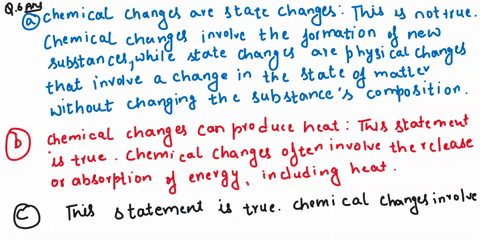 Q.6 Ans
(a) Chemical changes are state changes: This is not true.
Chemical changes involve the formation of new
substances, while state changes are physical changes
that involve a change in the state of matter
without changing the substance's composition.
(b) Chemical changes can produce heat: This statement
is true. Chemical changes often involve the release
or absorption of energy, including heat.
(c) This statement is true. Chemical changes involve